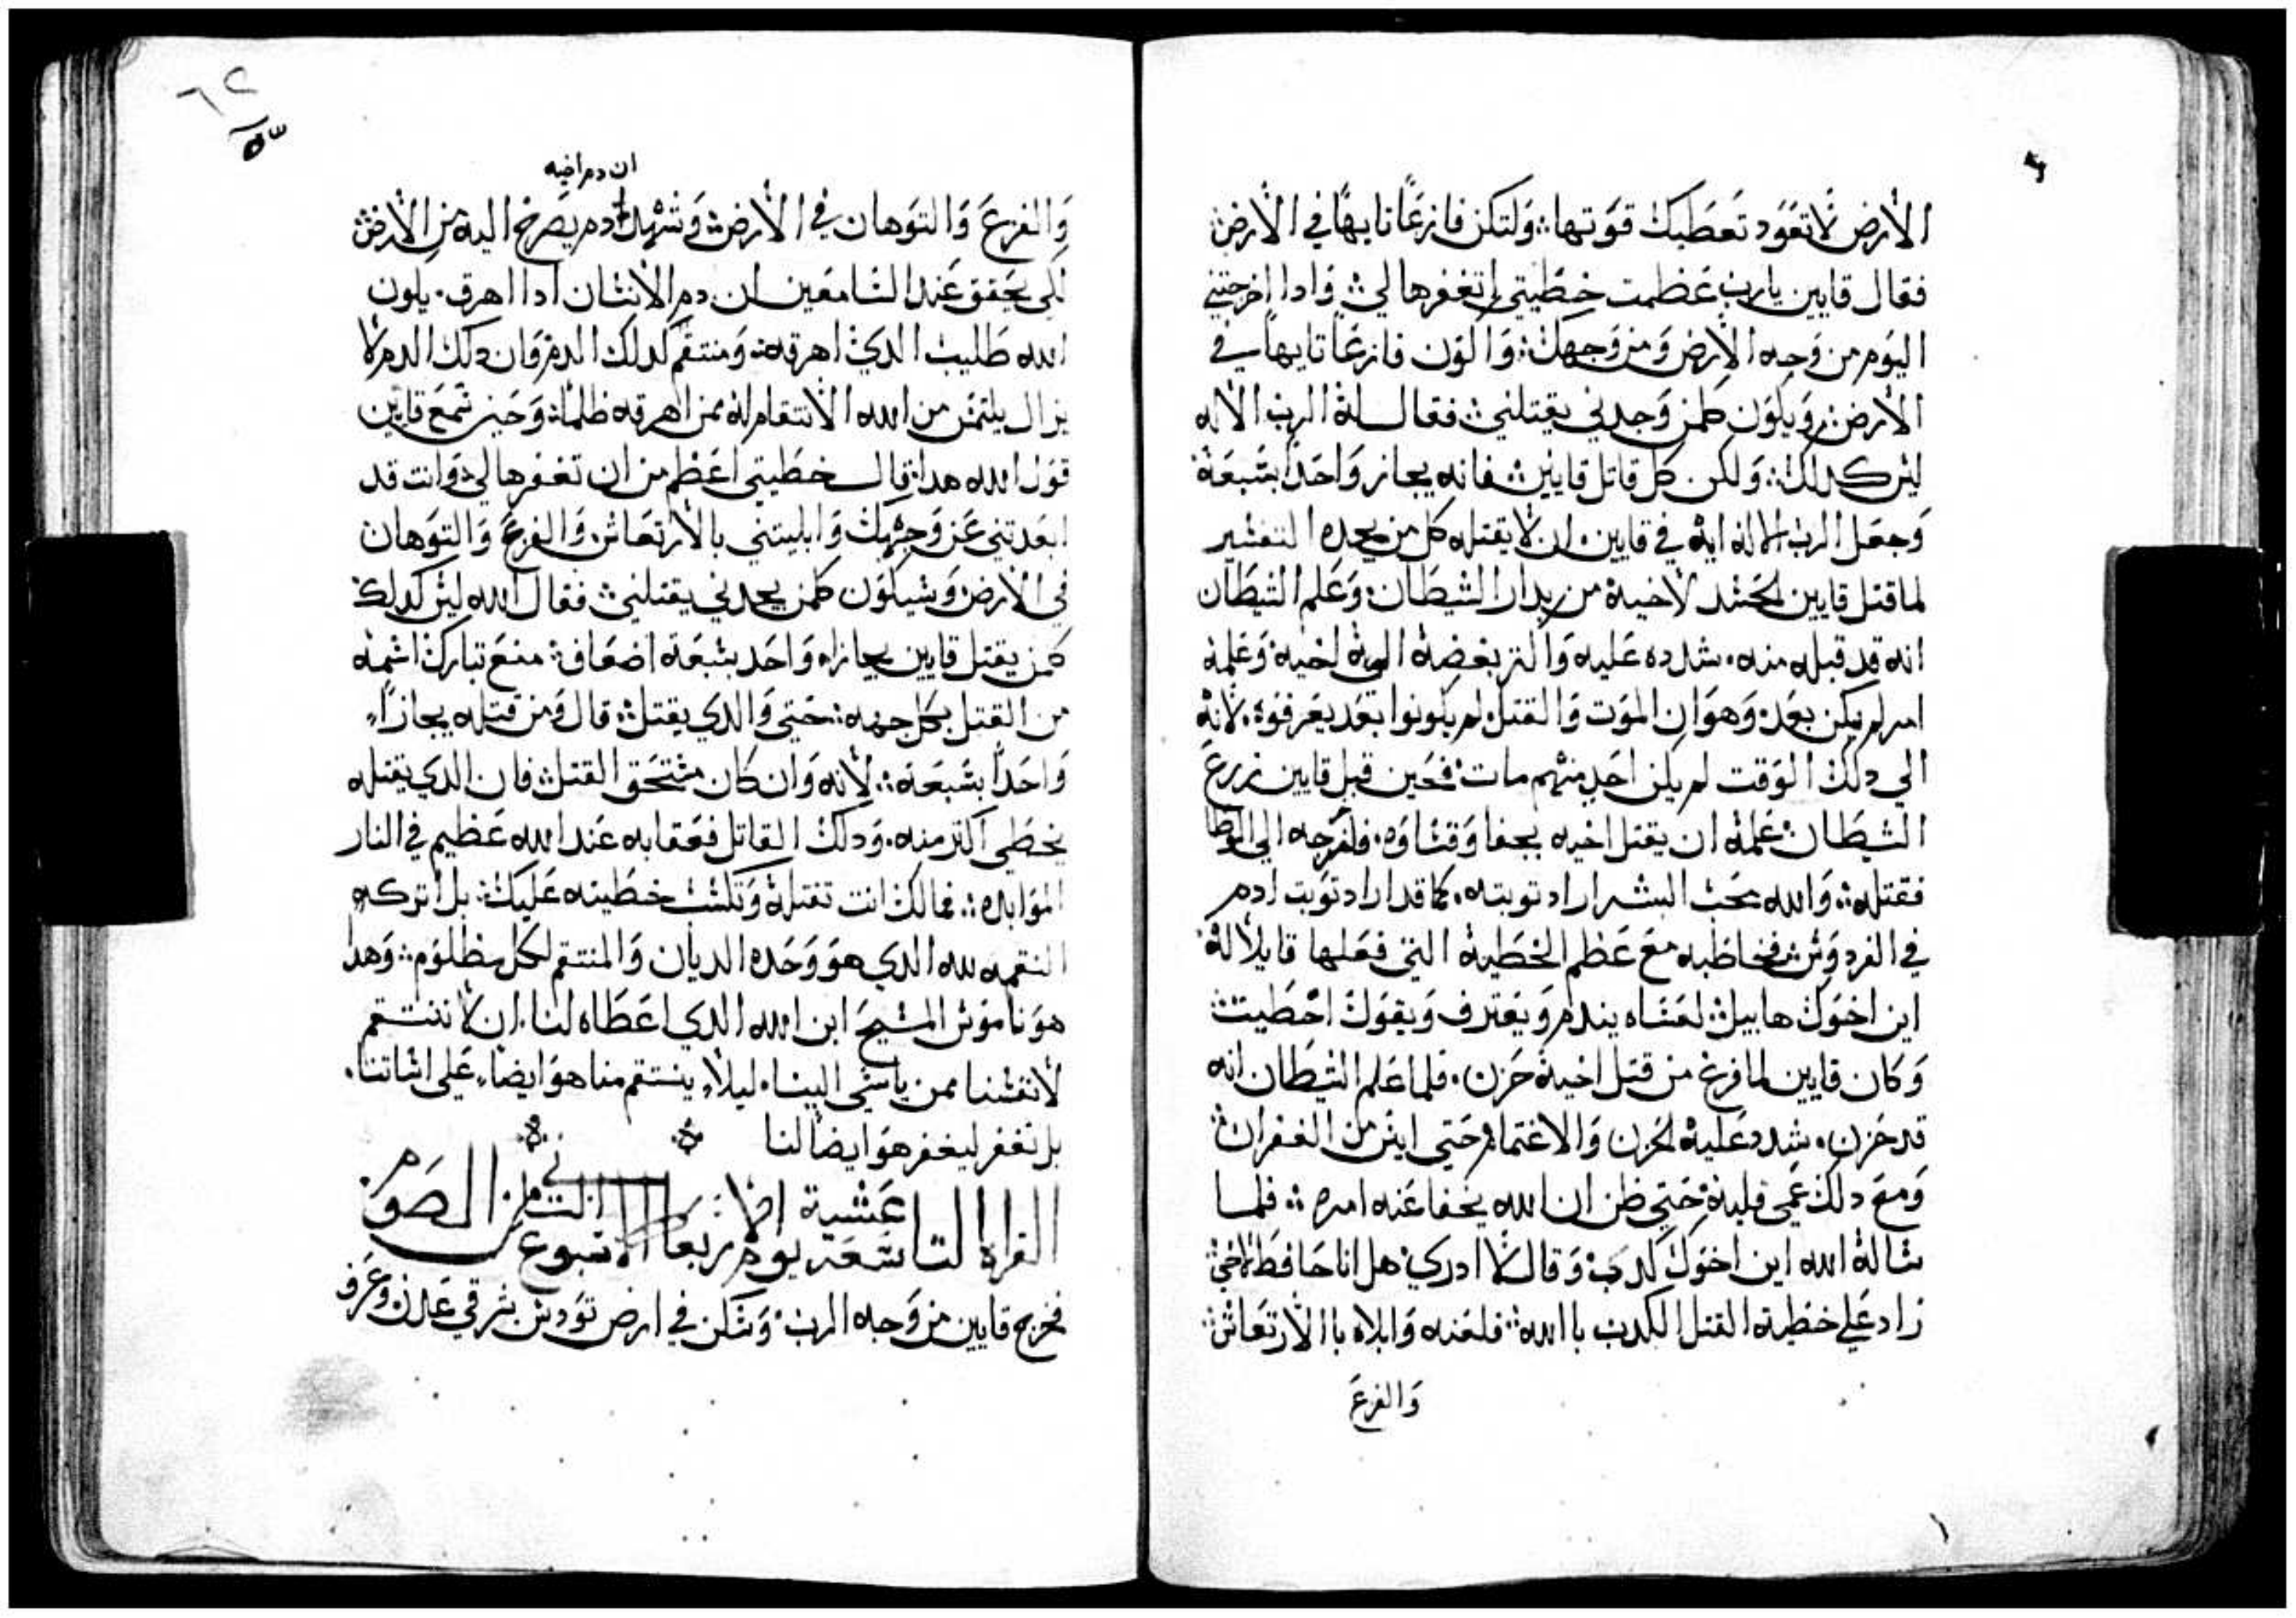 الأرض لا تعود تعطيك قوتها: ولتكن فازعًا تايهًا في الأرض
فقال قايين يارب عظمت خطيتي ان تغفرها لي: وادا اخرجتني
اليوم من وجه الارض ومن وجهك: واكون فازعًا تايهًا في
الأرض: ويكون كلمن وجدني يقتلني: فقال له الرب الاله
ليس كدلك: ولكن كل قاتل قايين فانه يجاز واحدًا بسبعة:
وجعل الرب الاله ايه في قايين ان لا يقتله كل من يجده التفسير
لما قتل قايين لحسد لاخيه من بدار الشيطان: وعلم الشيطان
انه قد قبله منه. شدده عليه واكتر بغضة اليه لخيه وعلمه
امر لم يكن بعد: وهو ان الموت والقتل لم يكونوا بعد يعرفوه. لانه
الي دلك الوقت لم يكن احد منهم مات: فحين قبل قايين زرع
الشيطان علمه ان يقتل اخيه بجفا وقساوه. فاخرجه الي
فقتله: والله محب البشر اراد توبته. كما قد اراد توبت ادم
في الفردوس فخاطبه مع عظم الخطية التي فعلها قايلًا له:
اين اخوك هابيل: لعساه يندم ويعترف ويقول اخطيت:
وكان قايين لما فرغ من قتل اخيه حزن. فلما علم الشيطان انه
قد حزن. شدد عليه الحزن والاغتمام حتي ايس من الغفران:
ومع دلك عمي قلبه: حتي ظن ان الله يخفا عنه امره: فلما
ساله الله اين اخوك كدب: وقال لا ادري: هل انا حافظ لاخي:
زاد علي خطية القتل الكدب با الله: فلعنه وابلاه با الارتعاش:
والفزع
٦٢
ان دم اخيه
والفزع والتوهان في الأرض: وشهد دم يصرخ اليه من الارض
لكي يحقق عند السامعين ان دم الانسان ادا اهرق. يكون
الله طليب الدي اهرقه: ومنتقم لدلك الدم: وان دلك الدم لا
يزال يلتمس من الله الانتقام له ممن اهرقه ظلمًا: وحين سمع قايين
قول الله هدا: قال خطيتي اعظم من ان تغفرها لي: وانت قد
ابعدتني عن وجهك وابليتني بالارتعاش والفزع والتوهان
في الارض: وسيكون كلمن يجدني يقتلني: فقال الله ليس كدلك:
كلمن يقتل قايين يجازاه واحد بسبعة اضعاف: منع تبارك اسمه
من القتل بكل جهه: حتي والدي يقتل: قال ومن قتله يجازاء
واحدًا بسبعه: لانه وان كان مستحق القتل: فان الدي يقتله
يخطي اكتر منه. ودلك القاتل فعقابه عند الله عظيم في النار
الموابده: فمالك انت تقتله وتكسب خطيته عليك: بل اترك
النقمه لله الدي هو وحده الديان والمنتقم لكل مظلوم: وهدا
هو ناموس المسيح ابن الله الدي اعطاه لنا. ان لا ننتقم
لانفسنا ممن ياسي الينا. ليلًا ينتقم منا هو ايضًا علي اساتنا.
بل نغفر ليغفر هو ايضًا لنا
القراة التاسعة عشية يوم الاربعا الاسبوع التاني من الصوم
فخرج قايين من وجه الرب: وسكن في ارض تودس شرقي عدن: وعرف